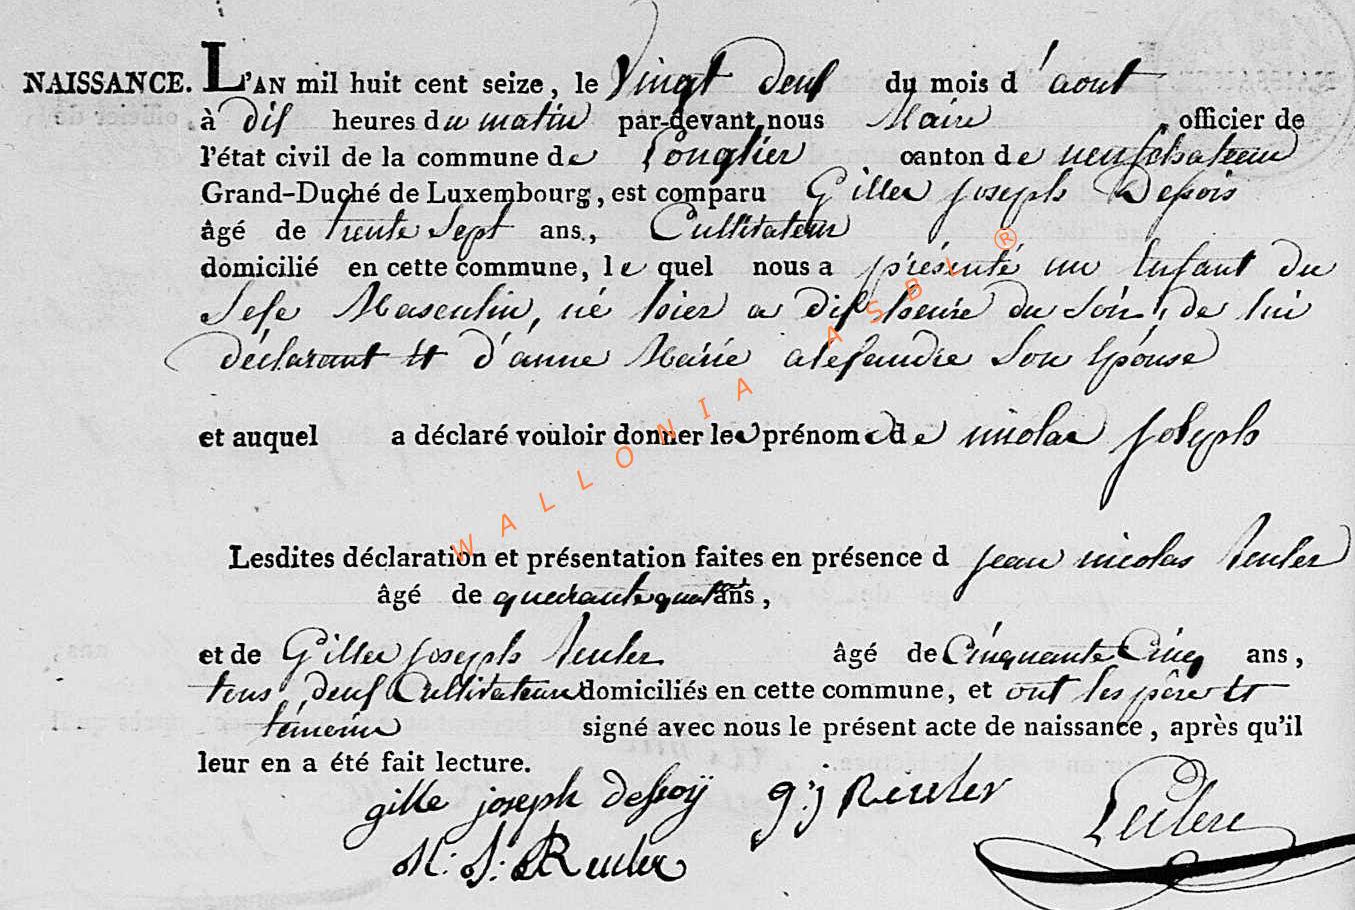 NAISSANCE. L'AN mil huit cent seize, le Vingt deux du mois d'aout
à dix heures du matin par-devant nous Maire officier de
l'état civil de la commune de Longlier canton de neufchateau
Grand-Duché de Luxembourg, est comparu Gilles joseph Dessois
âgé de trente Sept ans, Cultivateur
domicilié en cette commune, le quel nous a présenté un Enfant Du
Sexe Masculin, né hier a dix heure du Soir, de lui
déclarant Et d'anne Marie alexandre Son Epouse
et auquel a déclaré vouloir donner les prénoms de nicolas joseph
Lesdites déclaration et présentation faites en présence d jean nicolas Reuler
âgé de quarante quatre ans,
et de Gilles joseph Reuler âgé de Cinquante Cinq ans,
tous deux Cultivateurs domiciliés en cette commune, et ont les père Et
témoins signé avec nous le présent acte de naissance, après qu'il
leur en a été fait lecture.
gille joseph dessoÿ g:j Reuler Leclerc
N: J: Reuler
WALLONIA ASBL ®